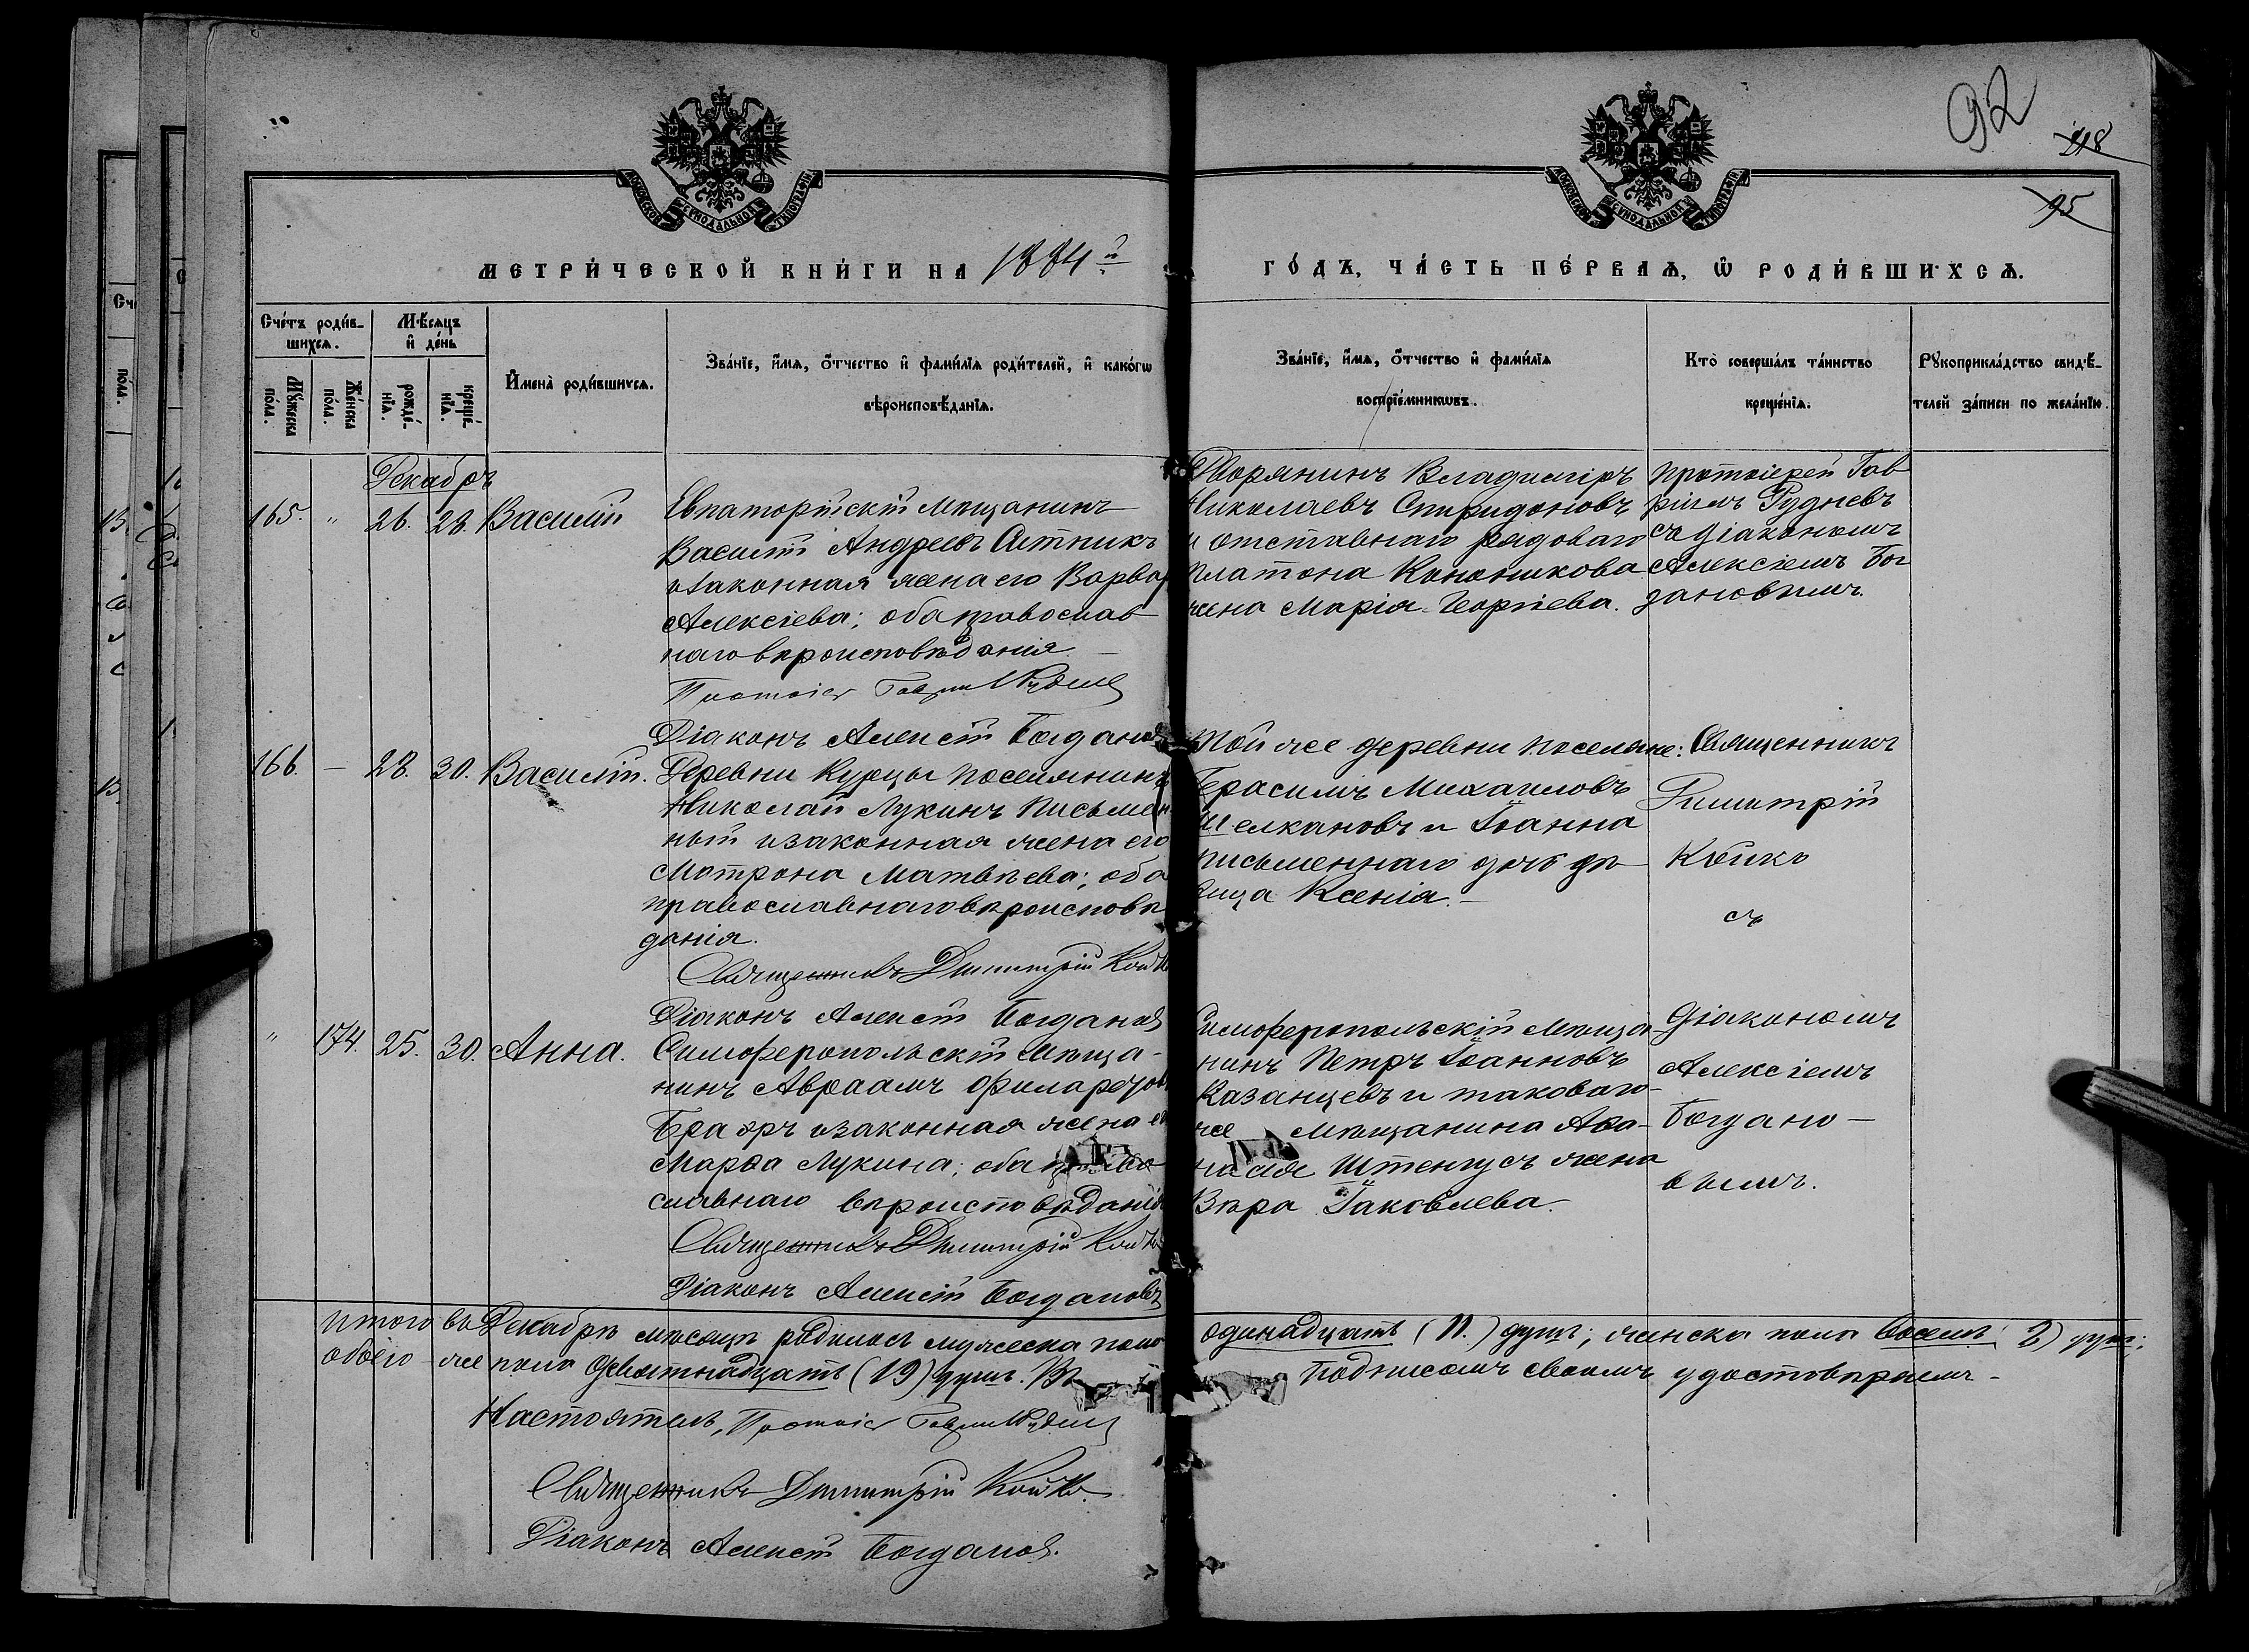 92
118
95
МОСКОВСКОЙ СѴНОДАЛЬНОЙ ТИПОГРАФІИ
МОСКОВСКОЙ СѴНОДАЛЬНОЙ ТИПОГРАФІИ
МЕТРИ́ЧЕСКОЙ КНИ́ГИ НА 1884й
ГО́ДЪ, ЧА́СТЬ ПЕ́РВАЯ, Ѡ РОДИ́ВШИХСЯ.
Сче́тъ роди́в-
шихся.
Му́жеска по́ла.
Же́нска по́ла.
Мѣ́сяцъ
и де́нь
рожде́-
нїя.
креще́-
нїя.
Имена̀ роди́вшихся.
Зва́нїе, и́мя, о́тчество и фами́лїя роди́телей, и како́гѡ
вѣроисповѣ́данїя.
Зва́нїе, и́мя, о́тчество и фами́лїя
воспрїе́мникѡвъ.
Кто̀ соверша́лъ та́инство
креще́нїя.
Рꙋкоприкла́дство свидѣ́-
телей за́писи по жела́нїю.
Декабрь
165. " 26. 28. Василій
Евпаторійскій Мѣщанинъ
Василій Андреевъ Сѣтникъ
и законная жена его Варвар
Алексіева; оба православ
наго вѣроисповѣданія
Протоіер Гавріилъ Руднев
Діаконъ Алексій Богданов
Дворянинъ Владиміръ
Николаевъ Спиридоновъ
и отставнаго рядоваго
Платона Кононикова
жена Марія Георгіева.
Протоіерей Гав
ріилъ Рудневъ
съ діакономъ
Алексіемъ Бог
дановымъ.
166. — 28. 30. Василій.
Деревни Курцы поселянинъ
Николай Лукинъ Письмен
ный и законная жена его
Матрона Матвѣева; оба
православнаго вѣроисповѣ
данія.
Священникъ Димитрій Койко
Діаконъ Алексій Богданов
Той же деревни поселяне:
Герасимъ Михаиловъ
Шелкановъ и Іоанна
Письменнаго дочь дѣ
вица Ксенія.
Священникъ
Димитрій
Койко
съ
" 174. 25. 30. Анна.
Симферопольскій Мѣща-
нинъ Авраамъ Филаретов
и законная жена его
Марѳа Лукина; оба право
славнаго вѣроисповѣданія
Священникъ Димитрій Койко
Діаконъ Алексій Богдановъ
Симферопольскій Мѣща
нинъ Петръ Іоанновъ
Казанцевъ и таковаго-
же мѣщанина Аѳа-
насія Штенгусъ жена
Вѣра Іаковлева.
Діакономъ
Алексіемъ
Богдано-
вымъ.
Итого въ Декабрѣ мѣсяцѣ родилось мужеска пола одинадцать (11.) душъ; женска пола восемь 8) душъ;
обоего же пола девятнадцать (19) душъ. Въ подписомъ своимъ удостовѣряемъ-
Настоятель, Протоіер Гавріилъ Руднев
Священникъ Димитрій Койко.
Діаконъ Алексій Богданов.